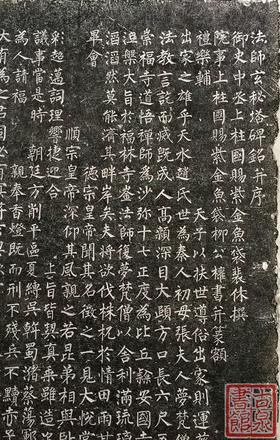 法師玄秘塔碑銘并序
御史中丞上柱國賜紫金魚袋裴休撰
院事上柱國賜紫金魚袋柳公權書并篆額
禮樂輔 天子以扶世導俗出家則運
出家之雄乎天水趙氏世為秦人初母張夫人夢梵僧
法教言訖而滅既成人高顙深目大頤方口長六尺五
崇福寺道悟禪師為沙弥十七正度為比丘隸安國
涅槃大旨於福林寺崟法師復夢梵僧以舍利滿瑠
滔滔然莫能濟其畔岸矣夫將欲伐株杌於情田雨甘
畢會 德宗皇帝聞其名徵之一見大悅常
順宗皇帝深仰其風親之若昆弟相與臥
彩超邁詞理響捷迎合 上旨皆契真乘雖造次
議事當是時 朝廷方削平區夏縛吳斡蜀瀦蔡蕩鄆
為人請福 親奉香燈既而刑不殘兵不黷赤子
大有為之君固必有冥符